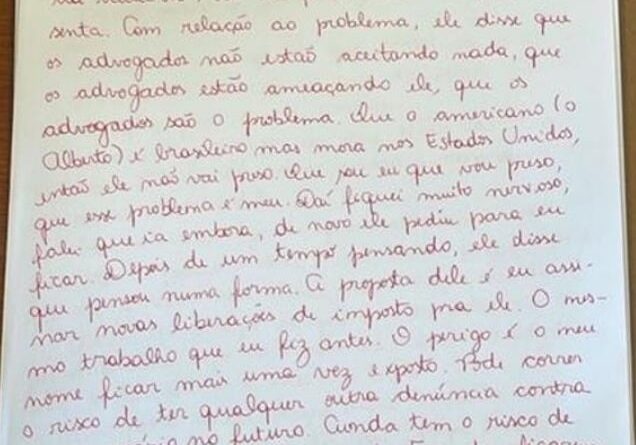 senta. Com relação ao problema, ele disse que
os advogados não estão aceitando nada, que
os advogados estão ameaçando ele, que os
advogados são o problema. Que o americano (o
Alberto) é brasileiro mas mora nos Estados Unidos,
então ele não vai preso. Que sou eu que vou preso,
que esse problema é meu. Daí fiquei muito nervoso,
falei que ia embora, de novo ele pediu para eu
ficar. Depois de um tempo pensando, ele disse
que pensou numa forma. A proposta dele é eu assi-
nar novas liberações de imposto pra ele. O mes-
mo trabalho que eu fiz antes. O perigo é o meu
nome ficar mais uma vez exposto. Pode correr
o risco de ter qualquer outra denúncia contra
no futuro. Ainda tem o risco de